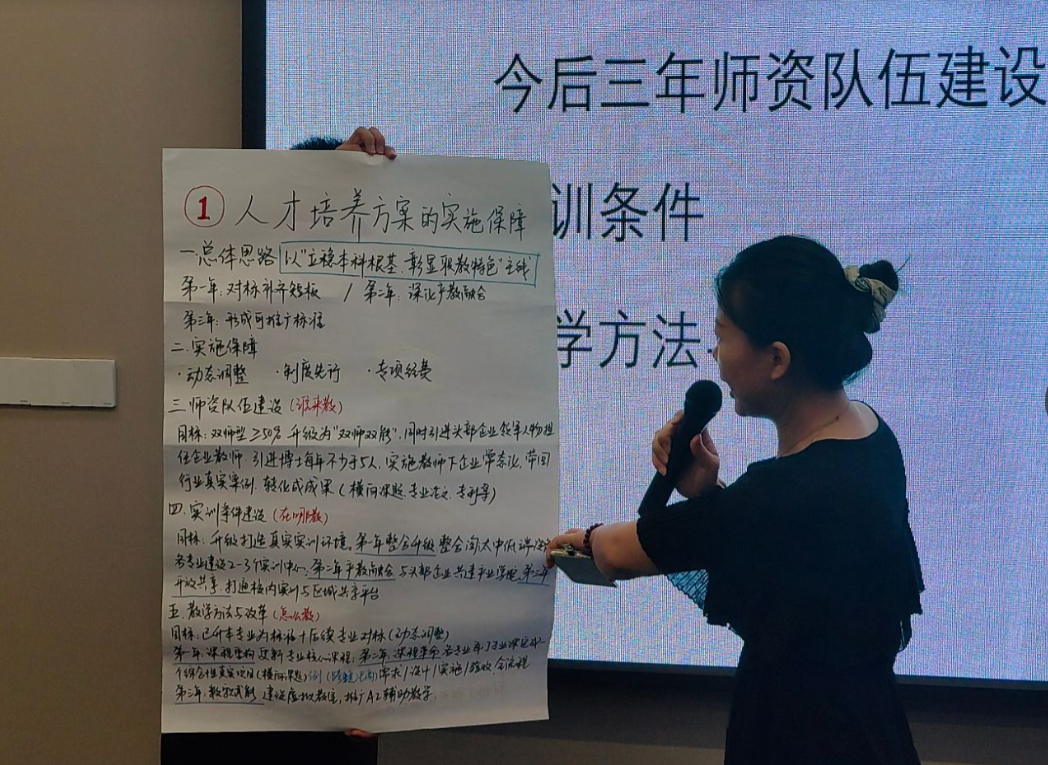 今后三年师资队伍建设
训条件
学方法
① 人才培养方案的实施保障
一.总体思路 以"立稳本科根基.彰显职教特色"主线
第一年:对标补齐短板 / 第二年:深化产教融合
第三年:形成可推广标准
二.实施保障
·动态调整 ·制度先行 ·专项经费
三.师资队伍建设(谁来教)
目标:双师型≥50% 升级为"双师双能".同时引进头部企业领军人物担
任企业教师.引进博士每年不少于5人.实施教师下企业常态化.带回
行业真实案例.转化成成果(横向课题.专业论文.专利等)
四.实训条件建设(在哪教)
目标:升级打造真实实训环境。第一年整合升级 整合淘汰中低端
各专业建设2-3个实训中心.第二年产教融合 与头部企业共建产业学院.第三年
开放共享.打通校内实训与区域共享平台
五.教学方法与改革(怎么教)
目标:已升本专业为标杆+后续专业对标(动态调整)
第一年.课程重构 更新专业核心课程.第二年.课程革命
个综合性真实项目(横向课题) 需求/设计/实施/验收.全流程
第三年.数字赋能 建设虚拟教室,推广AI辅助教学.